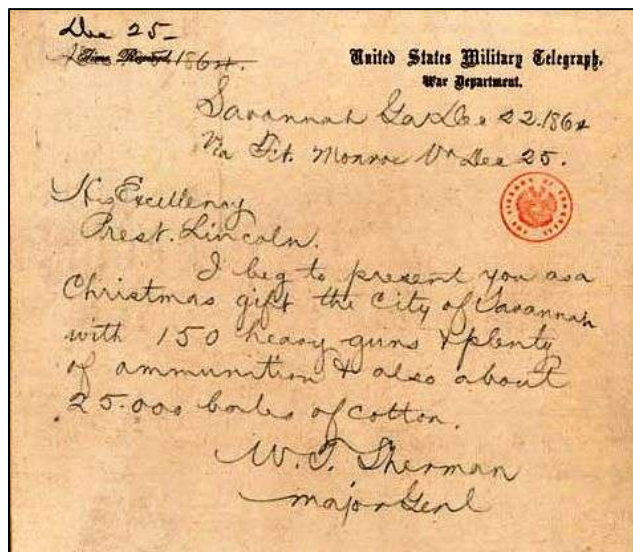 Dec 25-
1864.
United States Military Telegraph,
War Department.
Savannah Ga Dec 22. 1864
Via Ft. Monroe Va Dec 25.
His Excellency
Prest. Lincoln.
I beg to present you as a
Christmas gift the City of Savannah
with 150 heavy guns & plenty
of ammunition & also about
25.000 bales of cotton.
W. T. Sherman
Major Genl